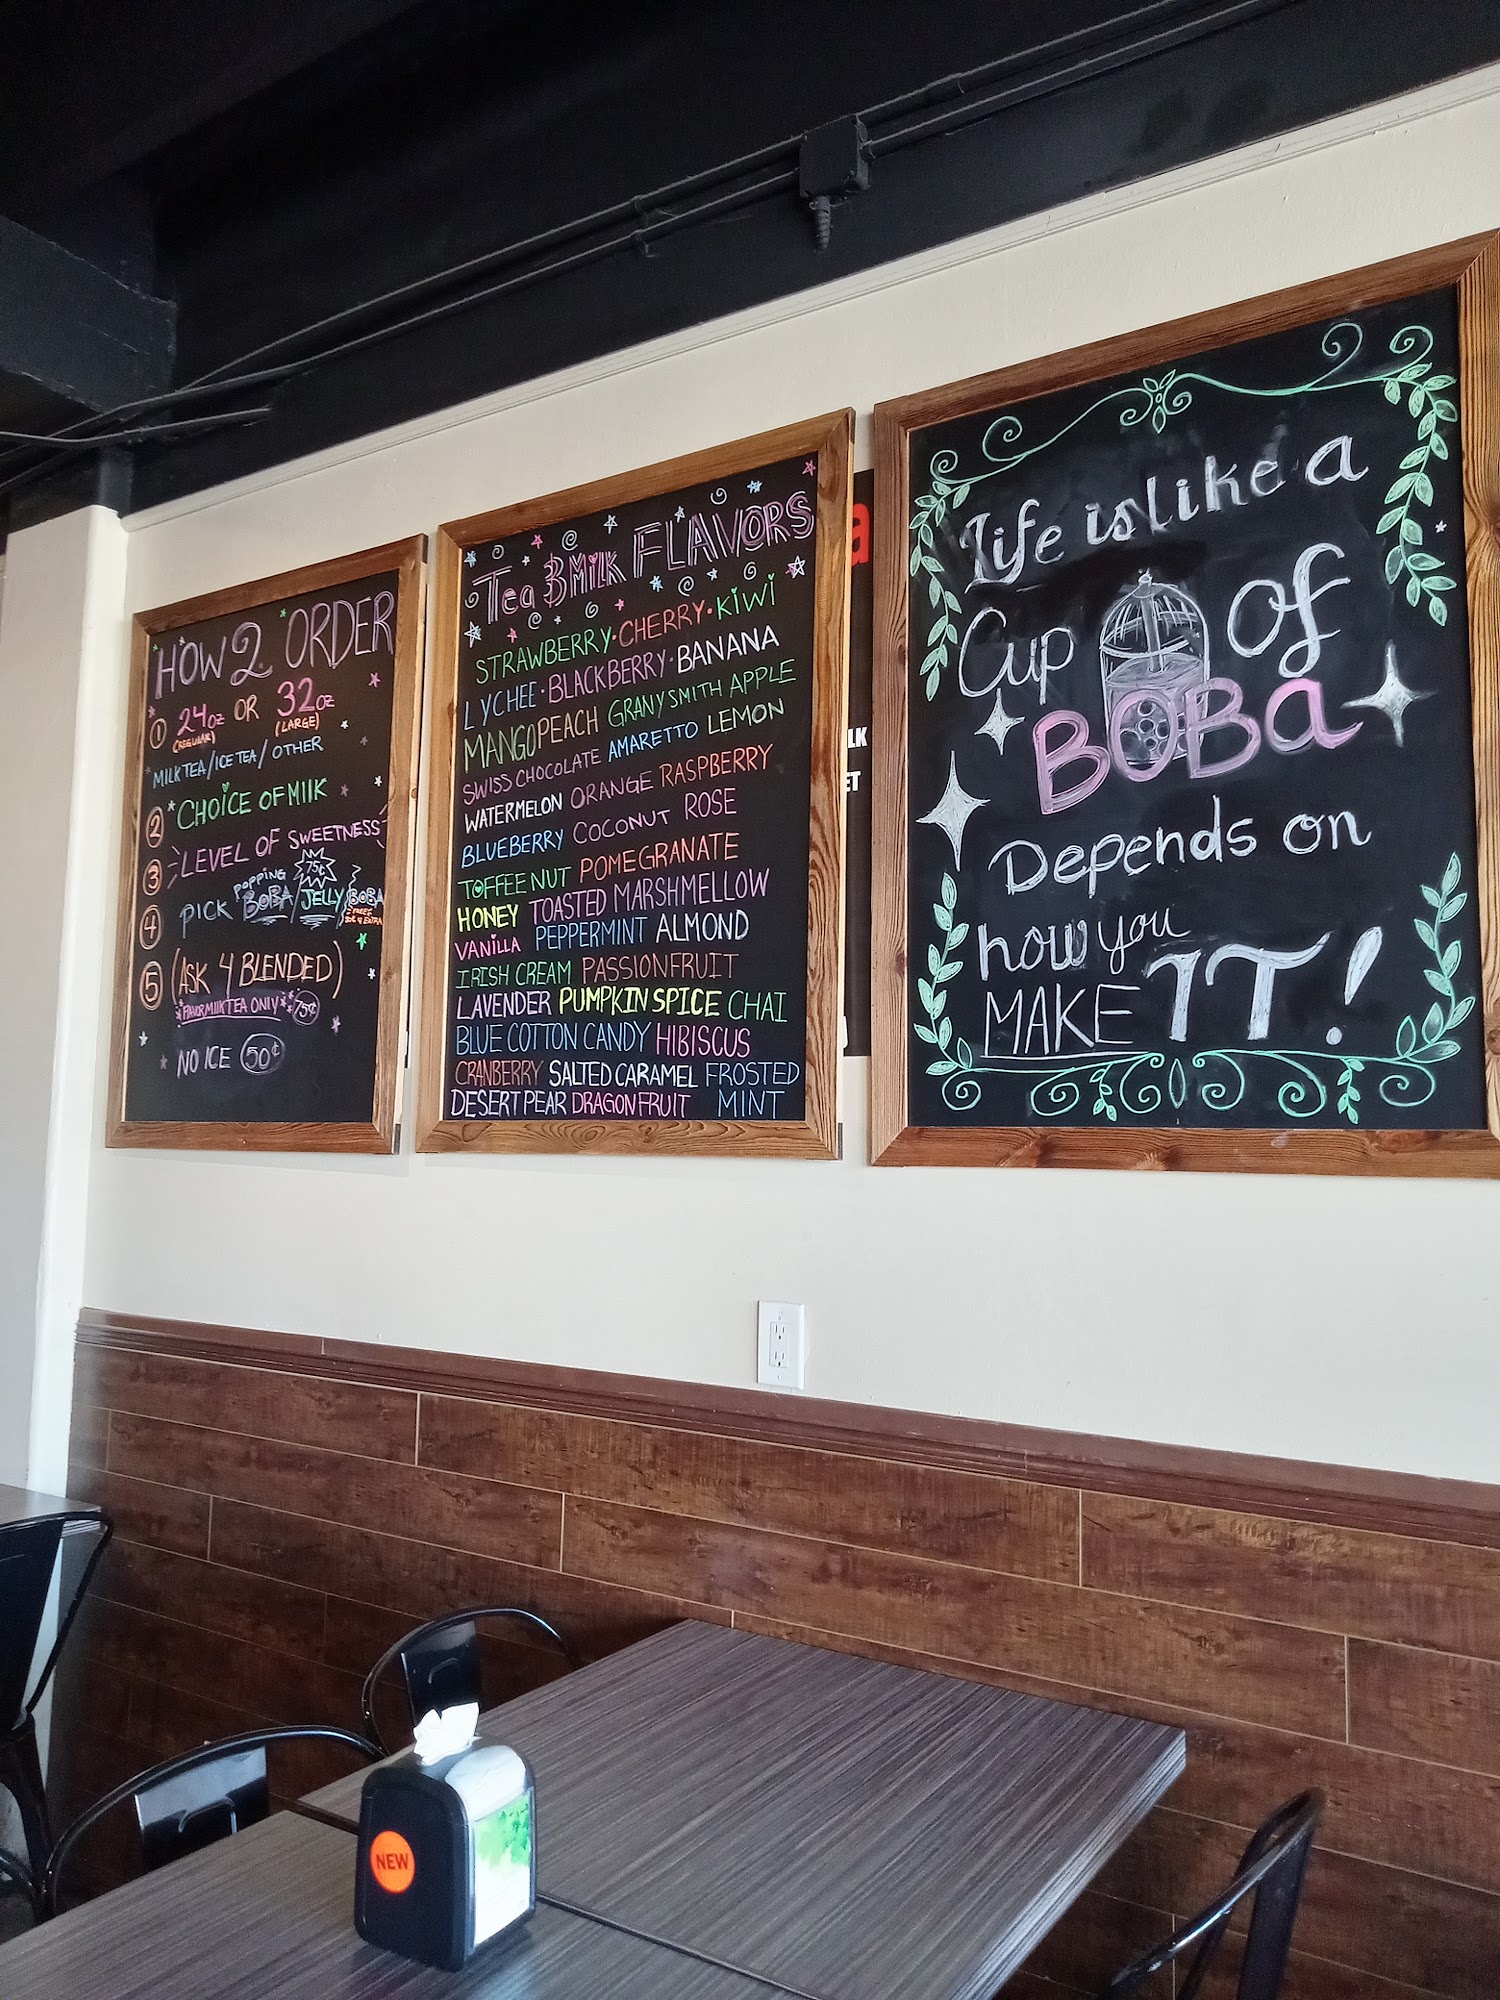 HOW 2 ORDER
1 24oz OR 32oz
(REGULAR) (LARGE)
MILK TEA/ICE TEA/OTHER
2 CHOICE OF MIlK
3 LEVEL OF SWEETNESS
75¢
4 PICK POPPING BOBA/JELLY/BOBA
5 (ASK 4 BLENDED)
MILK TEA ONLY 75¢
NO ICE 50¢
Tea & MiLK FLAVORS
STRAWBERRY·CHERRY·KiWi
LYCHEE·BLACKBERRY·BANANA
MANGO PEACH GRANY SMITH APPLE
SWISS CHOCOLATE AMARETTO LEMON
WATERMELON ORANGE RASPBERRY
BLUEBERRY COCONUT ROSE
TOFFEE NUT POMEGRANATE
HONEY TOASTED MARSHMELLOW
VANiLLA PEPPERMINT ALMOND
IRISH CREAM PASSIONFRUIT
LAVENDER PUMPKIN SPICE CHAI
BLUE COTTON CANDY HIBISCUS
CRANBERRY SALTED CARAMEL FROSTED
DESERT PEAR DRAGONFRUIT MINT
Life is like a
Cup of
BOBa
Depends on
how you
MAKE IT!
a
LK
ET
NEW